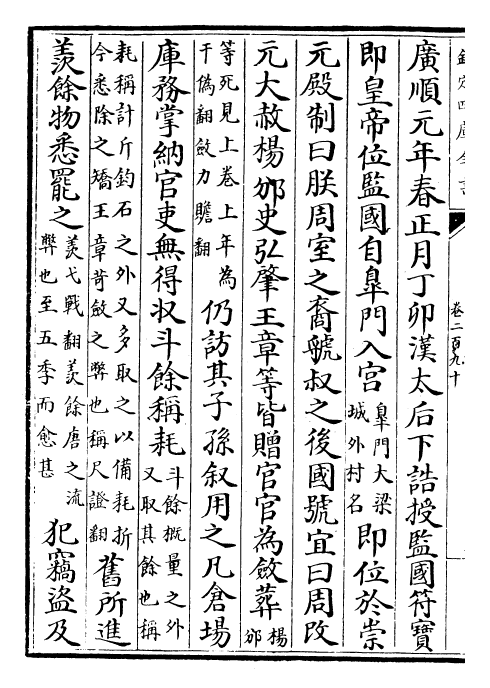 欽定四庫全書
卷二百九十
廣順元年春正月丁卯漢太后下誥授監國符寶
即皇帝位監國自臯門入宮臯門大梁城外村名即位於崇
元殿制曰朕周室之裔虢叔之後國號宜曰周改
元大赦楊邠史弘肇王章等皆贈官官為斂葬楊邠
等死見上卷上年為于偽翻斂力贍翻仍訪其子孫叙用之凡倉場
庫務掌納官吏無得收斗餘稱耗斗餘概量之外又取其餘也稱
耗稱計斤鈞石之外又多取之以備耗折今悉除之矯王章苛斂之弊也稱尺證翻舊所進
羨餘物悉罷之羨弋戰翻羨餘唐之流弊也至五季而愈甚犯竊盜及